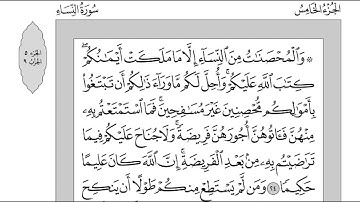 الجزء الخامس
سورة النساء
الجزء ٥
الحزب ٩
۞ وَالْمُحْصَنَاتُ مِنَ النِّسَاءِ إِلَّا مَا مَلَكَتْ أَيْمَانُكُمْ
كِتَابَ اللَّهِ عَلَيْكُمْ وَأُحِلَّ لَكُم مَّا وَرَاءَ ذَٰلِكُمْ أَن تَبْتَغُوا
بِأَمْوَالِكُم مُّحْصِنِينَ غَيْرَ مُسَافِحِينَ فَمَا اسْتَمْتَعْتُم بِهِ
مِنْهُنَّ فَآتُوهُنَّ أُجُورَهُنَّ فَرِيضَةً وَلَا جُنَاحَ عَلَيْكُمْ فِيمَا
تَرَاضَيْتُم بِهِ مِن بَعْدِ الْفَرِيضَةِ إِنَّ اللَّهَ كَانَ عَلِيمًا
حَكِيمًا ٢٤ وَمَن لَّمْ يَسْتَطِعْ مِنكُمْ طَوْلًا أَن يَنكِحَ